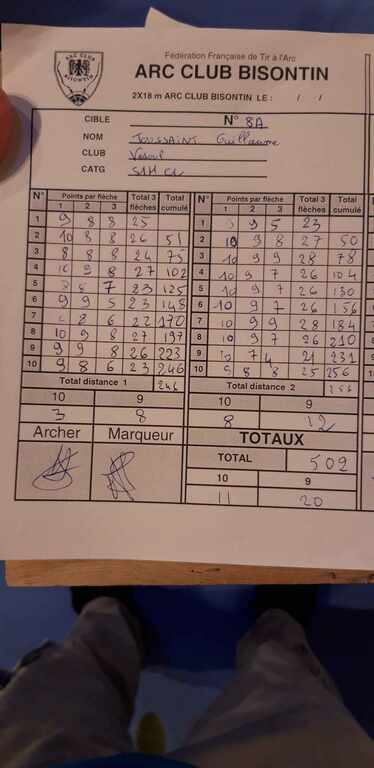 ARC CLUB
BISONTIN
Fédération Française de Tir à l'Arc
ARC CLUB BISONTIN
2X18 m ARC CLUB BISONTIN LE : / /
CIBLE N° 8A
NOM TOUSSAINT Guillaume
CLUB Vesoul
CATG S1H CL
N° Points par flèche 1 2 3 Total 3 flèches Total cumulé
1 9 8 8 25
2 10 8 8 26 51
3 8 8 8 24 75
4 10 9 8 27 102
5 8 8 7 23 125
6 9 9 5 23 148
7 8 8 6 22 170
8 10 9 8 27 197
9 9 9 8 26 223
10 9 8 6 23 246
Total distance 1 246
10 9
3 8
Archer Marqueur
N° Points par flèche 1 2 3 Total 3 flèches Total cumulé
1 9 9 5 23
2 10 9 8 27 50
3 10 9 9 28 78
4 10 9 7 26 104
5 10 9 7 26 130
6 10 9 7 26 156
7 10 9 9 28 184
8 10 9 7 26 210
9 10 7 4 21 231
10 9 8 8 25 256
Total distance 2 256
10 9
8 12
TOTAUX
TOTAL 502
10 9
11 20